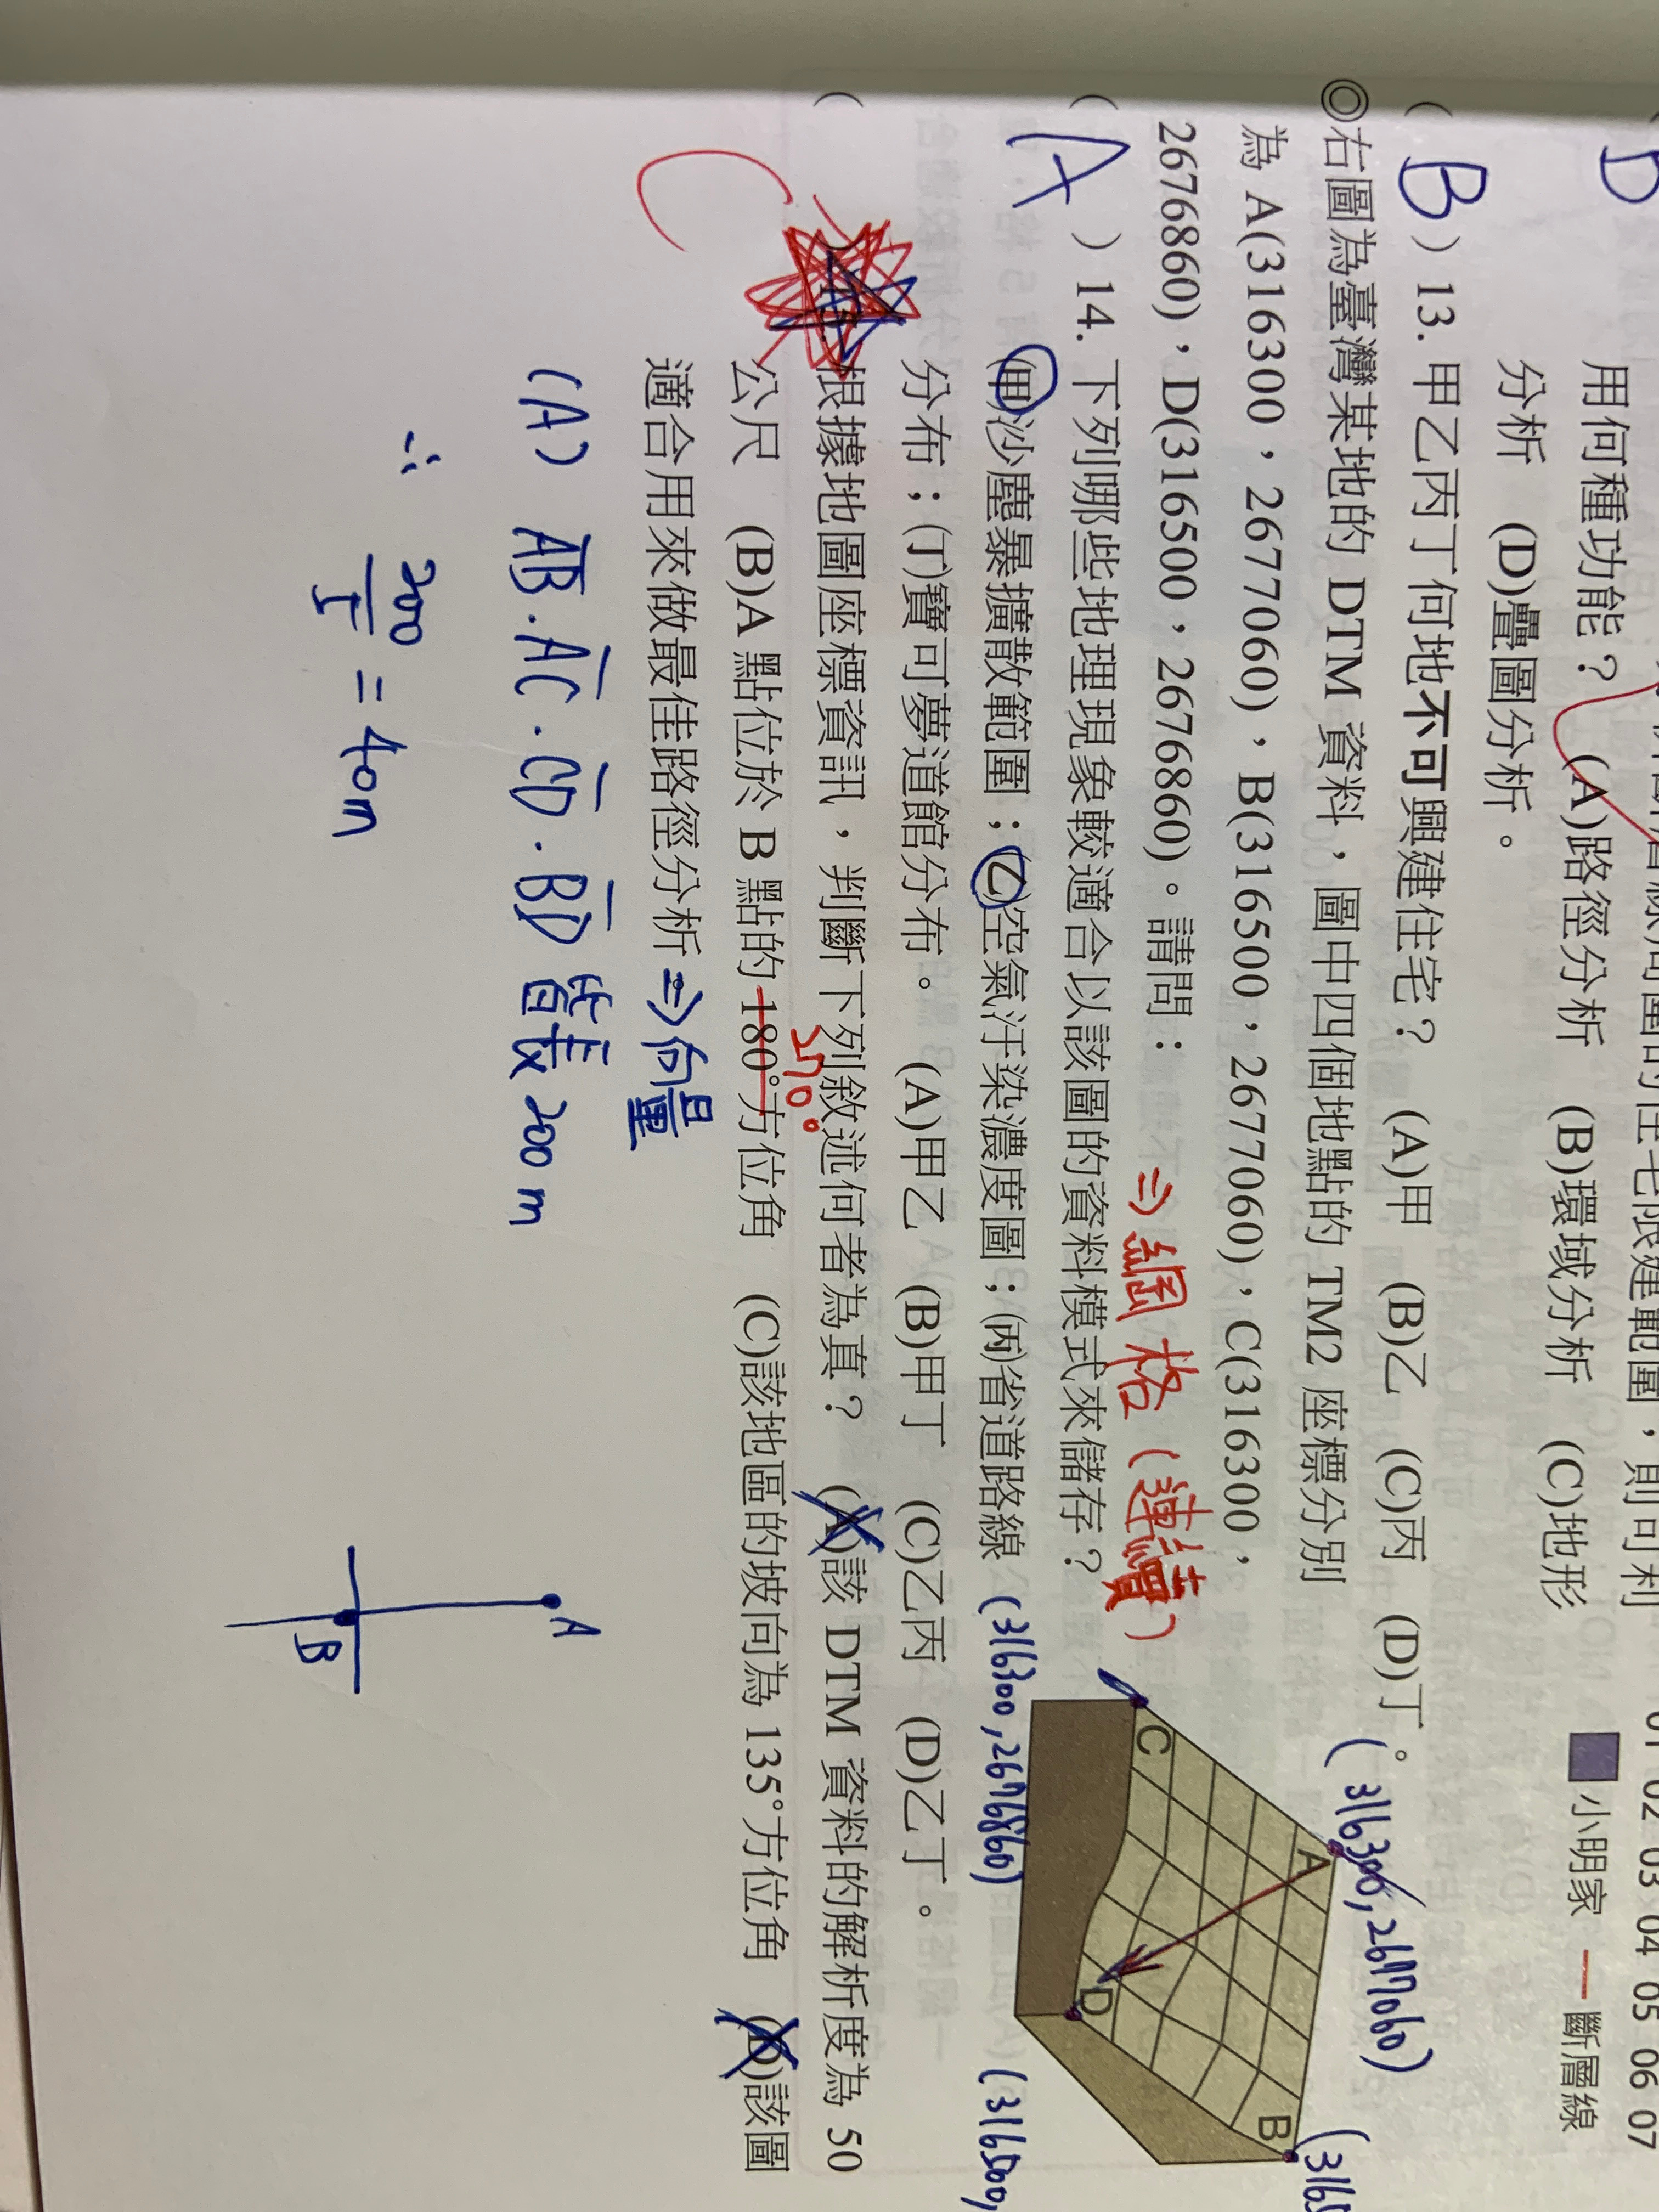 用何種功能？ (A)路徑分析 (B)環域分析 (C)地形
分析 (D)疊圖分析。
01 02 03 04 05 06 07
小明家 斷層線
( B ) 13. 甲乙丙丁何地不可興建住宅？ (A)甲 (B)乙 (C)丙 (D)丁。
◎右圖為臺灣某地的 DTM 資料，圖中四個地點的 TM2 座標分別
為 A(316300，2677060)，B(316500，2677060)，C(316300，
2676860)，D(316500，2676860)。請問：
⇒網格（連續）
( A ) 14. 下列哪些地理現象較適合以該圖的資料模式來儲存？
(甲)沙塵暴擴散範圍；(乙)空氣汙染濃度圖；(丙)省道路線
分布；(丁)寶可夢道館分布。 (A)甲乙 (B)甲丁 (C)乙丙 (D)乙丁。
(316300,2677060)
A
B
C
D
(316300,2676860)
(316500,
( C ) 15. 根據地圖座標資訊，判斷下列敘述何者為真？ (A)該 DTM 資料的解析度為 50
270°
公尺 (B)A 點位於 B 點的 180°方位角 (C)該地區的坡向為 135°方位角 (D)該圖
適合用來做最佳路徑分析 ⇒向量
(A) AB．AC．CD．BD 皆長 200 m
∴ 200/5 = 40m
A
B